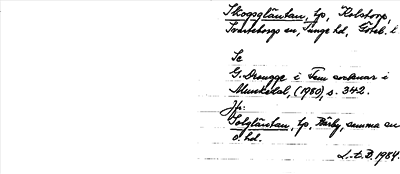 Skogsgläntan, lp, Kolstorp,
Svarteborgs sn, Tunge hd, Göteb. l
Se
G. Drougge i Tem socknar i
Munkedal, (1980), s. 342.
Jfr:
Solgläntan, lp, Bärby, samma sn
o. hd.
L.-t. B. 1984.